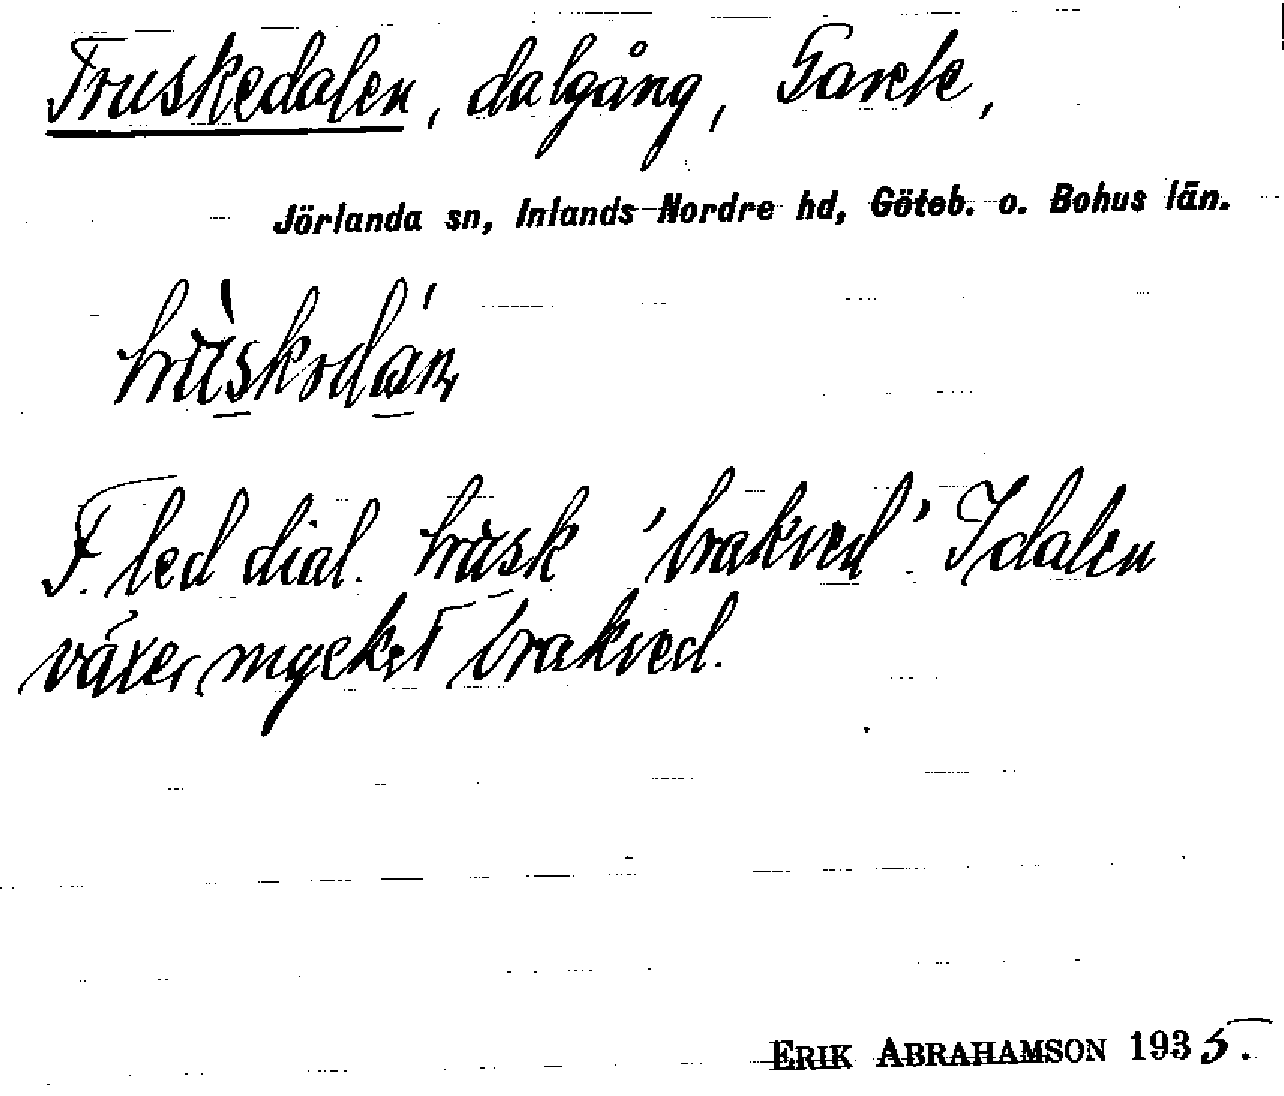 Truskedalen, dalgång, Sarele,
Jörlanda sn, Inlands Nordre hd, Göteb. o. Bohus län.
F. led dial. trusk 'brakved'. I dalen
växer mycket brakved.
ERIK ABRAHAMSON 1935.